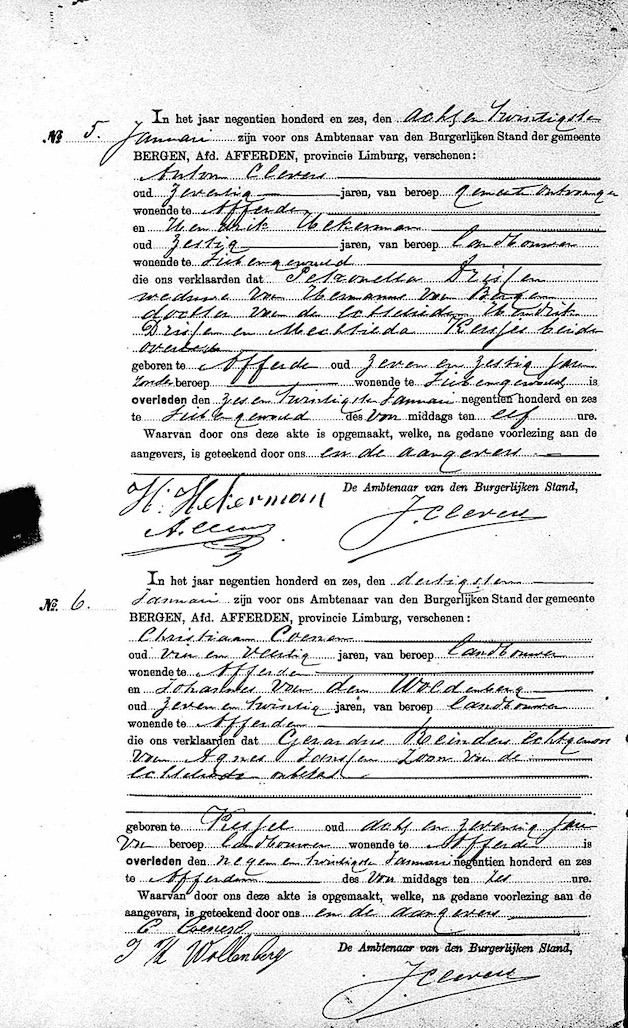 In het jaar negentien honderd en zes, den achtentwintigste
№ 5. Januari zijn voor ons Ambtenaar van den Burgerlijken Stand der gemeente
BERGEN, Afd. AFFERDEN, provincie Limburg, verschenen:
Antoon Clevers
oud zeventig jaren, van beroep gemeente ontvanger
wonende te Afferden
en Hendrik Hekerman
oud zestig jaren, van beroep landbouwer
wonende te Siebengewald
die ons verklaarden dat Petronella Driessen
weduwe van Hermanus van Bergen
dochter van de echtelieden Hendrik
Driessen en Mechtilda Kersjes beiden
overleden
geboren te Afferden oud zeven en zestig jaar
zonder beroep wonende te Siebengewald is
overleden den zesentwintigsten Januari negentien honderd en zes
te Siebengewald des Voor middags ten elf ure.
Waarvan door ons deze akte is opgemaakt, welke, na gedane voorlezing aan de
aangevers, is geteekend door ons en de aangevers
De Ambtenaar van den Burgerlijken Stand,
H: Hekerman
A. Clevers
J. Clevers
In het jaar negentien honderd en zes, den dertigsten
№. 6. Januari zijn voor ons Ambtenaar van den Burgerlijken Stand der gemeente
BERGEN, Afd. AFFERDEN, provincie Limburg, verschenen:
Christiaan Coenen
oud vier en veertig jaren, van beroep landbouwer
wonende te Afferden
en Johannes van den Woldenberg
oud zeven en twintig jaren, van beroep landbouwer
wonende te Afferden
die ons verklaarden dat Gerardus Reinders echtgenoot
van Agnes Janssen zoon van de
echtelieden onbekend
geboren te Kessel oud acht en zeventig jaar
van beroep landbouwer wonende te Afferden is
overleden den negenentwintigsten Januari negentien honderd en zes
te Afferden des Voor middags ten zes ure.
Waarvan door ons deze akte is opgemaakt, welke, na gedane voorlezing aan de
aangevers, is geteekend door ons en de aangevers
C Coenen
De Ambtenaar van den Burgerlijken Stand,
Wollenberg
J. Clevers